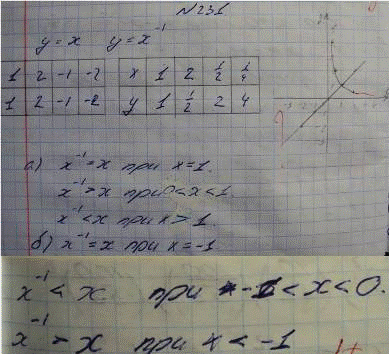 №231.
y = x   y = x⁻¹
1 2 -1 -2   x 1 2 ½ ¼
1 2 -1 -2   y 1 ½ 2 4
а) x⁻¹ = x при x = 1.
x⁻¹ > x при 0 < x < 1.
x⁻¹ < x при x > 1
б) x⁻¹ = x при x = -1
x⁻¹ < x при -1 < x < 0.
x⁻¹ > x при x < -1